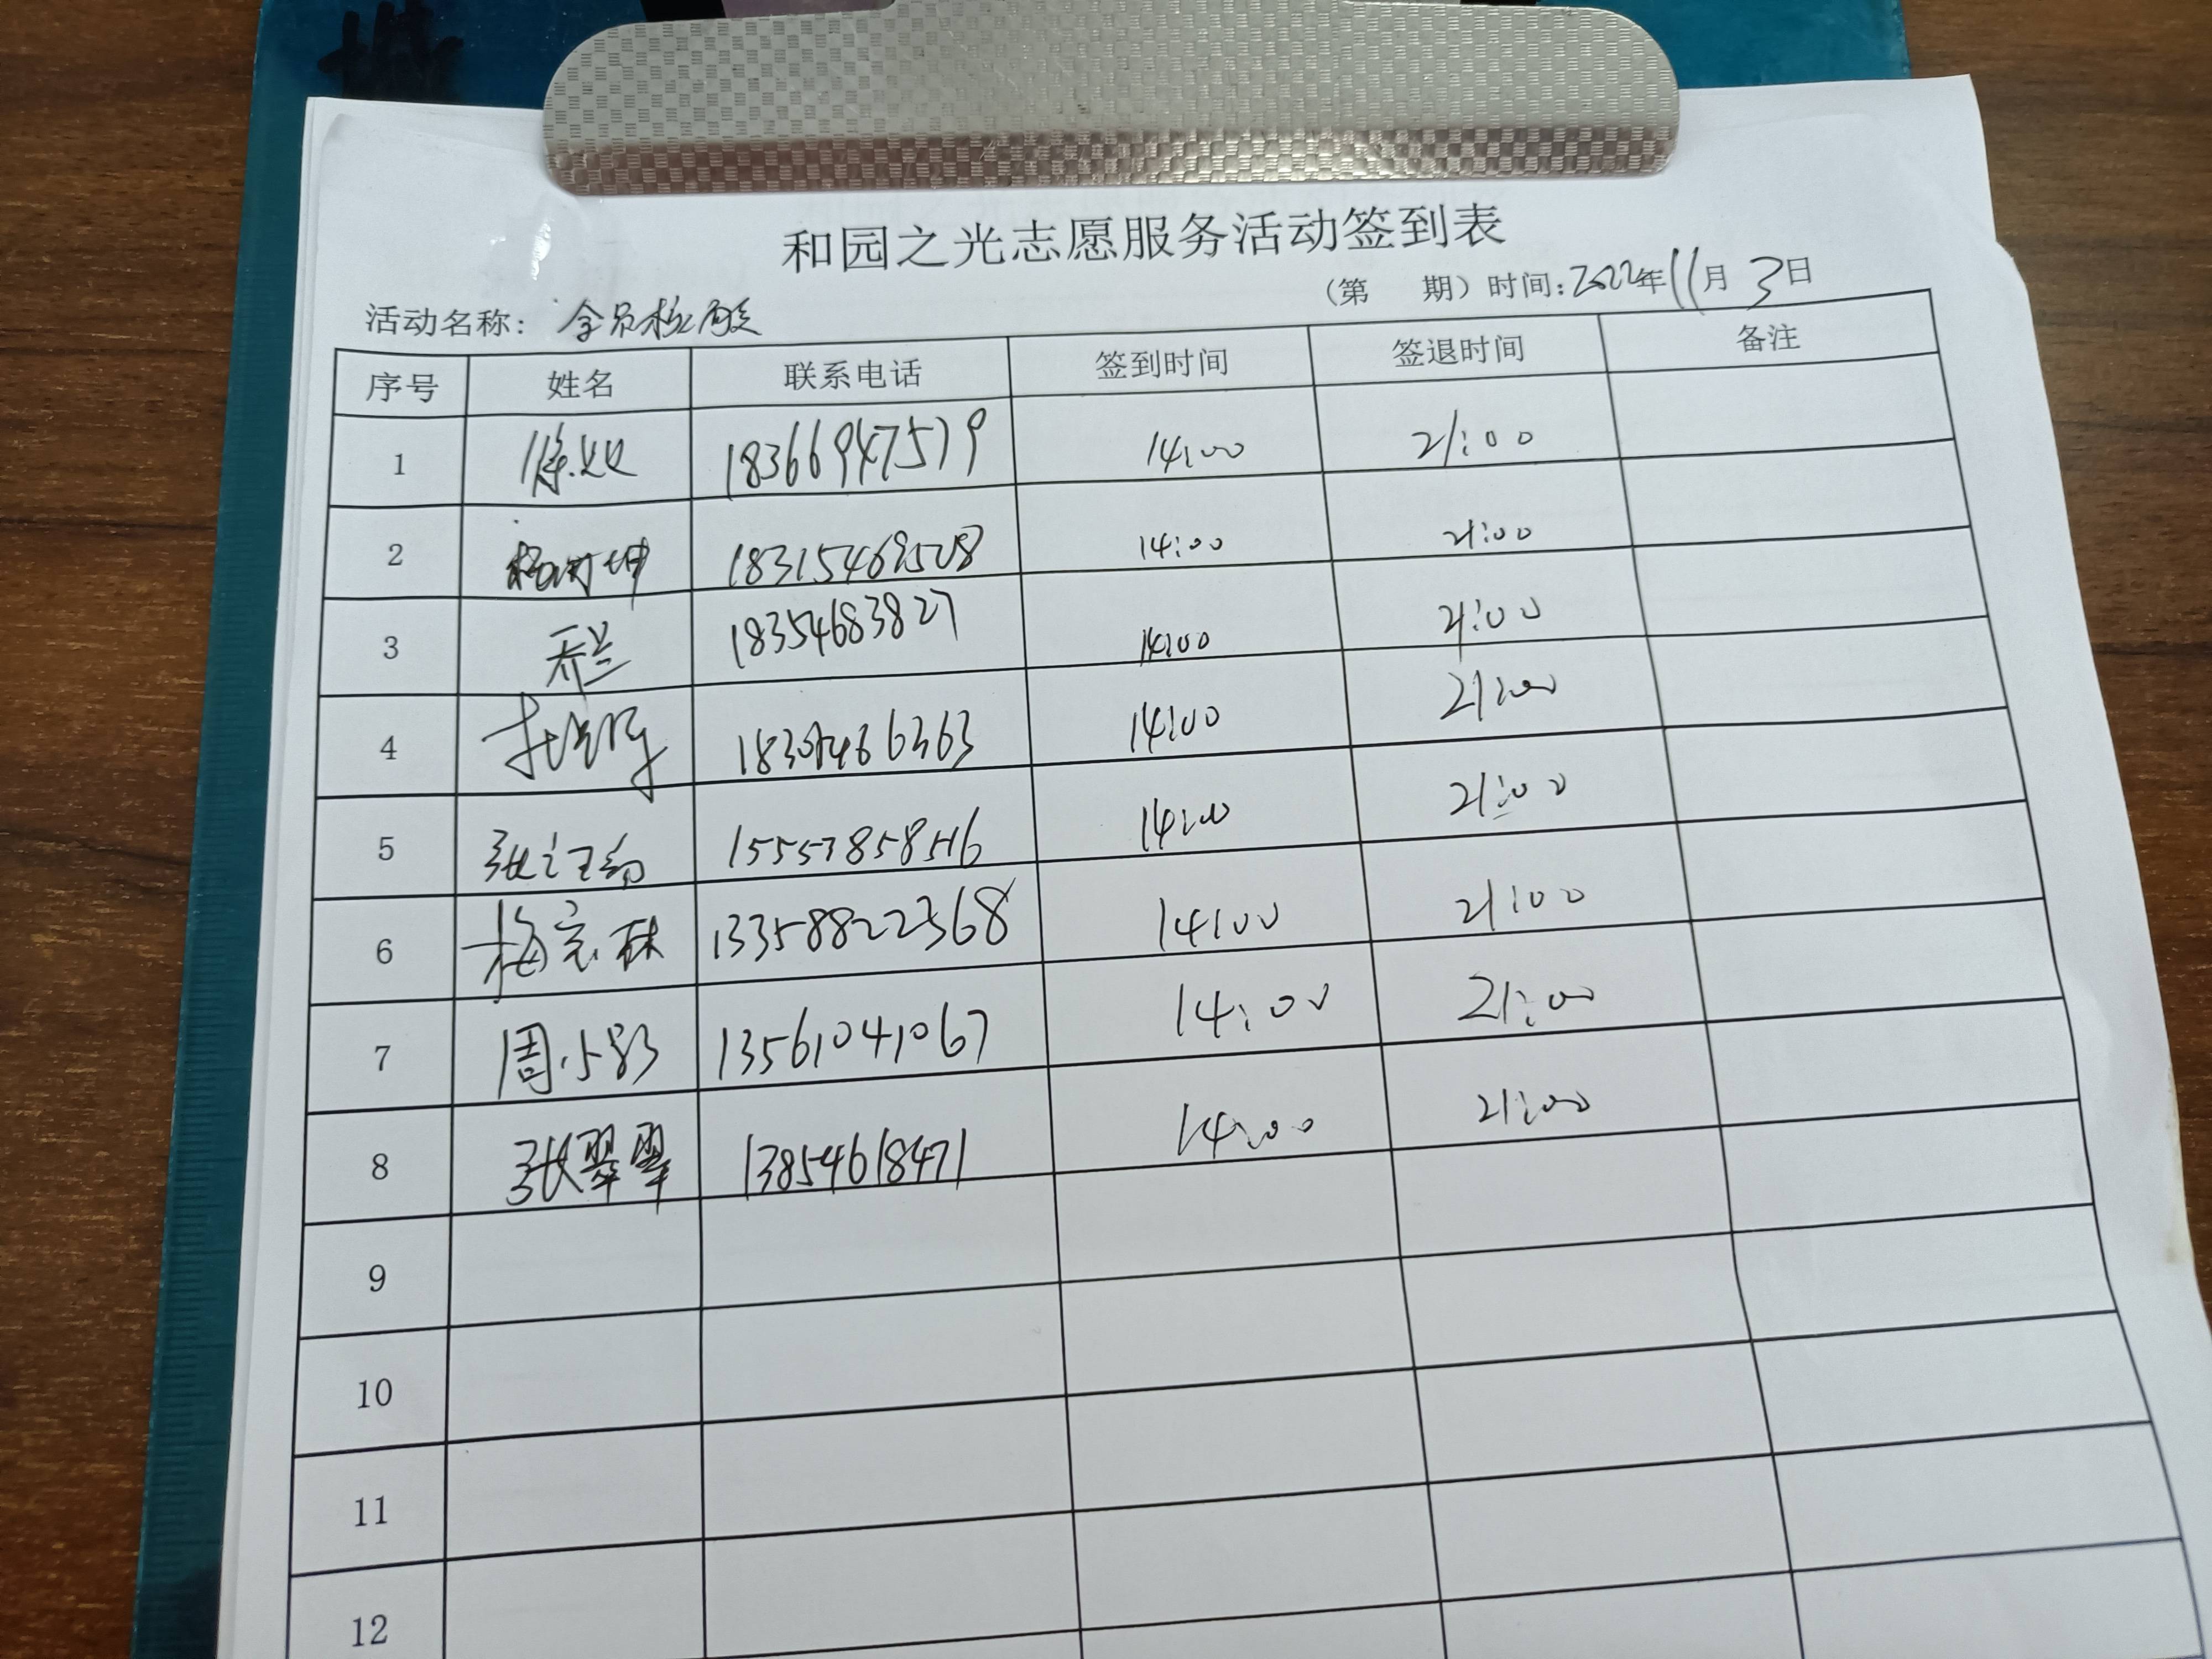 和园之光志愿服务活动签到表
(第 期) 时间: 2022年 11月 3日
活动名称: 全员核酸
序号 姓名 联系电话 签到时间 签退时间 备注
1 徐双 18366947579 14:00 21:00
2 18315469508 14:00 21:00
3 乔兰 18354683827 14:00 21:00
4 14:00 21:00
5 14:00 21:00
6 13358822368 14:00 21:00
7 周小彭 13561041067 14:00 21:00
8 张翠翠 13854618471 14:00 21:00
9
10
11
12